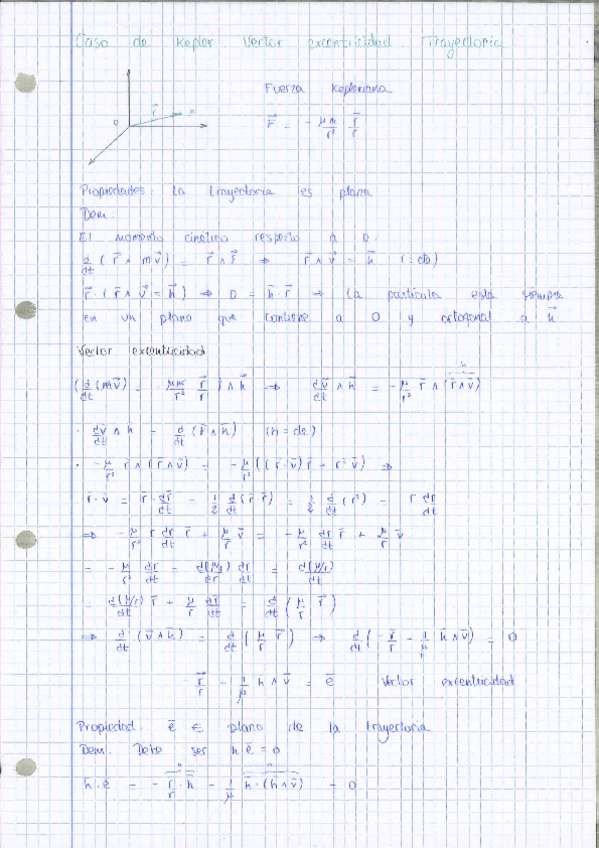 Caso de Kepler Vector excentricidad. Trayectoria
Fuerza Kepleriana
O r⃗ m
F⃗ = - μm/r² r⃗/r
Propiedades: La trayectoria es plana
Dem:
El momento cinetico respecto a O:
d/dt ( r⃗ ∧ m v⃗ ) = r⃗ ∧ F⃗ ⇒ r⃗ ∧ v⃗ = h⃗ (: cte)
r⃗ · ( r⃗ ∧ v⃗ = h⃗ ) ⇒ 0 = h⃗ · r⃗ → La partícula está siempre
en un plano que contiene a O y ortogonal a h⃗
Vector excentricidad
( d/dt (m v⃗) = - μm/r² r⃗/r ) ∧ h⃗ ⇒ dv⃗/dt ∧ h⃗ = - μ/r³ r⃗ ∧ (r⃗ ∧ v⃗)
· dv⃗/dt ∧ h = d/dt (v⃗ ∧ h⃗) (h = cte)
· - μ/r³ r⃗ ∧ (r⃗ ∧ v⃗) = - μ/r³ ((r⃗ · v⃗) r⃗ - r² v⃗) ⇒
r · v = r⃗ · dr⃗/dt = 1/2 d/dt (r⃗ · r⃗) = 1/2 d/dt (r²) = r dr/dt
⇒ - μ/r³ r dr/dt r⃗ + μ/r v⃗ = - μ/r² dr/dt r⃗ + μ/r v⃗
= - μ/r² dr/dt = d(μ/r)/dr dr/dt = d(μ/r)/dt
= d(μ/r)/dt r⃗ + μ/r dr⃗/dt = d/dt ( μ/r r⃗ )
⇒ d/dt (v⃗ ∧ h⃗) = d/dt ( μ/r r⃗ ) → d/dt ( - r⃗/r - 1/μ h⃗ ∧ v⃗ ) = 0
- r⃗/r - 1/μ h ∧ v⃗ = e⃗ Vector excentricidad
Propiedad: e⃗ ∈ plano de la trayectoria
Dem: Debe ser h · e = 0
h⃗ · e⃗ = - r⃗/r · h⃗ - 1/μ h⃗ · (h⃗ ∧ v⃗) = 0